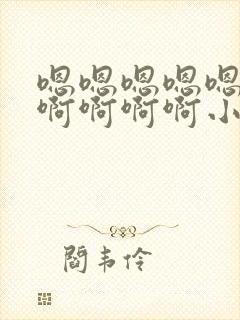 嗯嗯嗯嗯嗯
啊啊啊啊小
閻韦伶